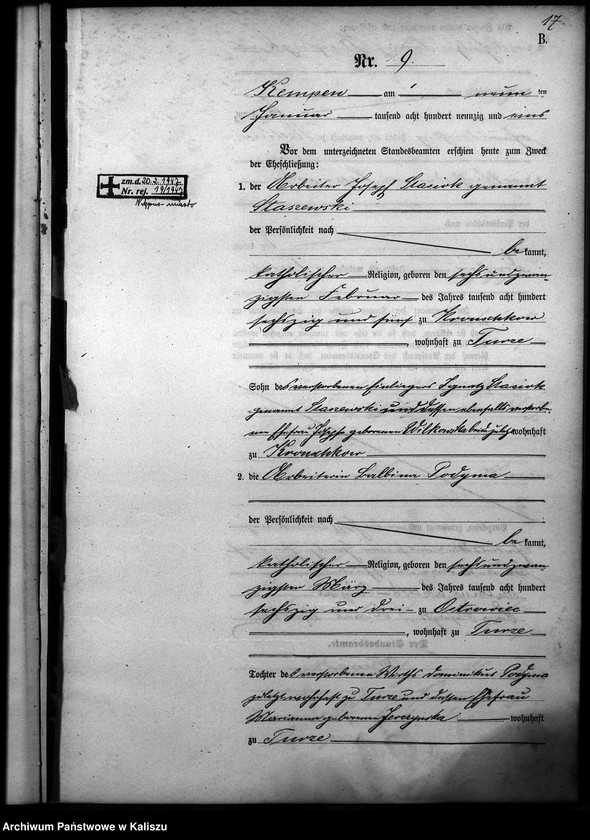 17.
B.
Nr. 9.
Kempen am neun ten
Januar tausend acht hundert neunzig und eins
Vor dem unterzeichneten Standesbeamten erschien heute zum Zweck
der Eheschließung:
1. der Arbeiter Joseph Stasiok genannt
Staszewski
der Persönlichkeit nach
be kannt,
katholischer Religion, geboren den sechs und zwan-
zigsten Februar des Jahres tausend acht hundert
sechszig und fünf zu Kronschkow
, wohnhaft zu Turze
Sohn des verstorbenen Einliegers Ignatz Stasiok
genannt Staszewski und dessen ebenfalls verstorbe-
nen Ehefrau geborenen Wilkowska beide zuletzt wohnhaft
zu Kronschkow
2. die Arbeiterin Balbina Podyma
der Persönlichkeit nach
be kannt,
katholischer Religion, geboren den sechs und zwan-
zigsten März des Jahres tausend acht hundert
sechszig und drei zu Ostrowiec
, wohnhaft zu Turze
Tochter des verstorbenen Wirths Dominikus Podyma
zuletzt wohnhaft zu Turze und dessen Ehefrau
Marianna geborenen wohnhaft
zu Turze
zm. d. 20.2.1947
Nr. rej. 19/1947
Archiwum Państwowe w Kaliszu